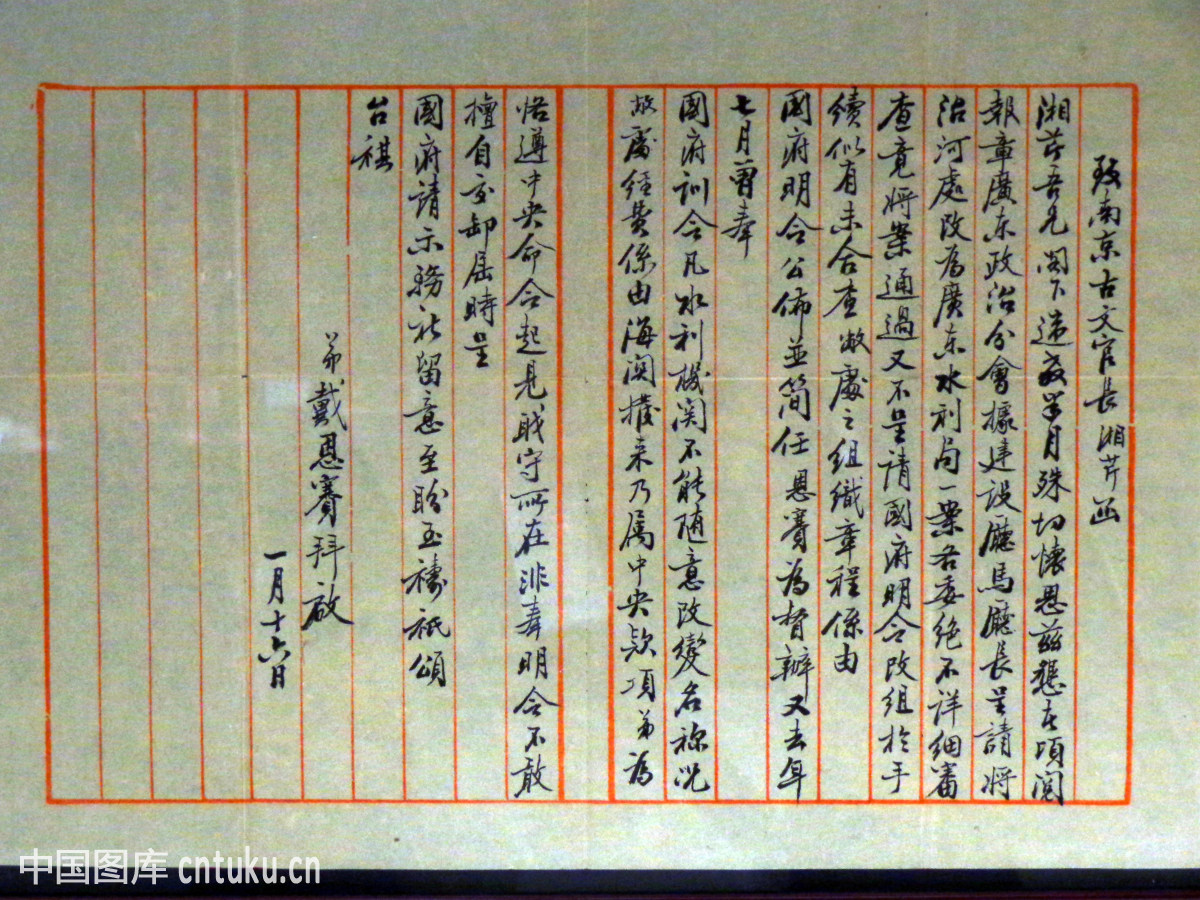 致南京古文官長湘芹函
湘芹吾兄閣下違教半月殊切懷思茲懇者頃閱
報章廣东政治分會據建設廳馬廳長呈請將
治河處改為廣东水利局一案各委絕不詳細審
查竟將案通過又不呈請國府明令改組於手
續似有未合查敝處之組織章程係由
國府明令公佈並简任恩賽為督辦又去年
七月曾奉
國府訓令凡水利機関不能随意改變名称况
敝處经費係由海関撥来乃属中央欵項弟為
恪遵中央命令起見職守所在非奉明令不敢
擅自交卸屆時呈
國府請示務祈留意至盼至禱祇頌
台祺
弟戴恩賽拜啟
一月十六日
中国图库 cntuku.cn